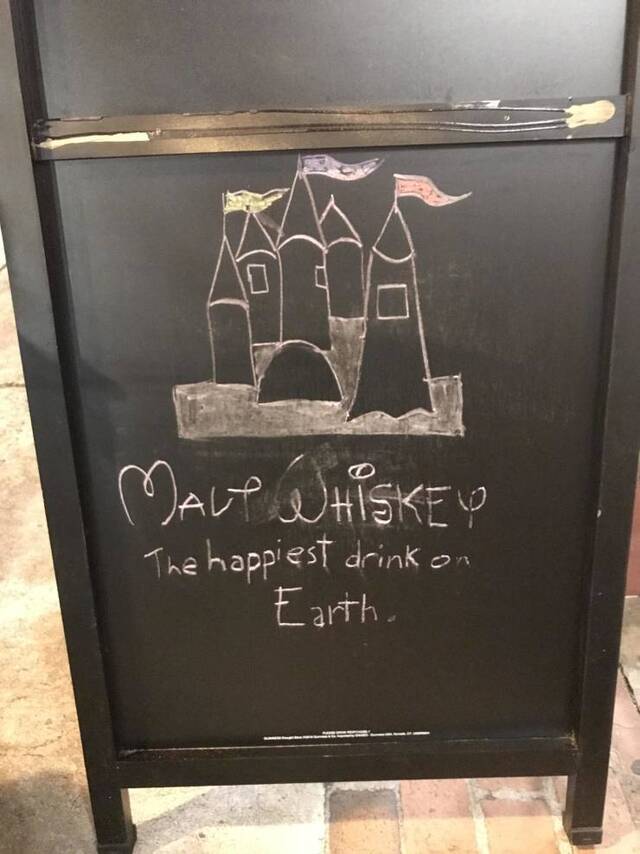 MALT WHISKEY
The happiest drink on
Earth.